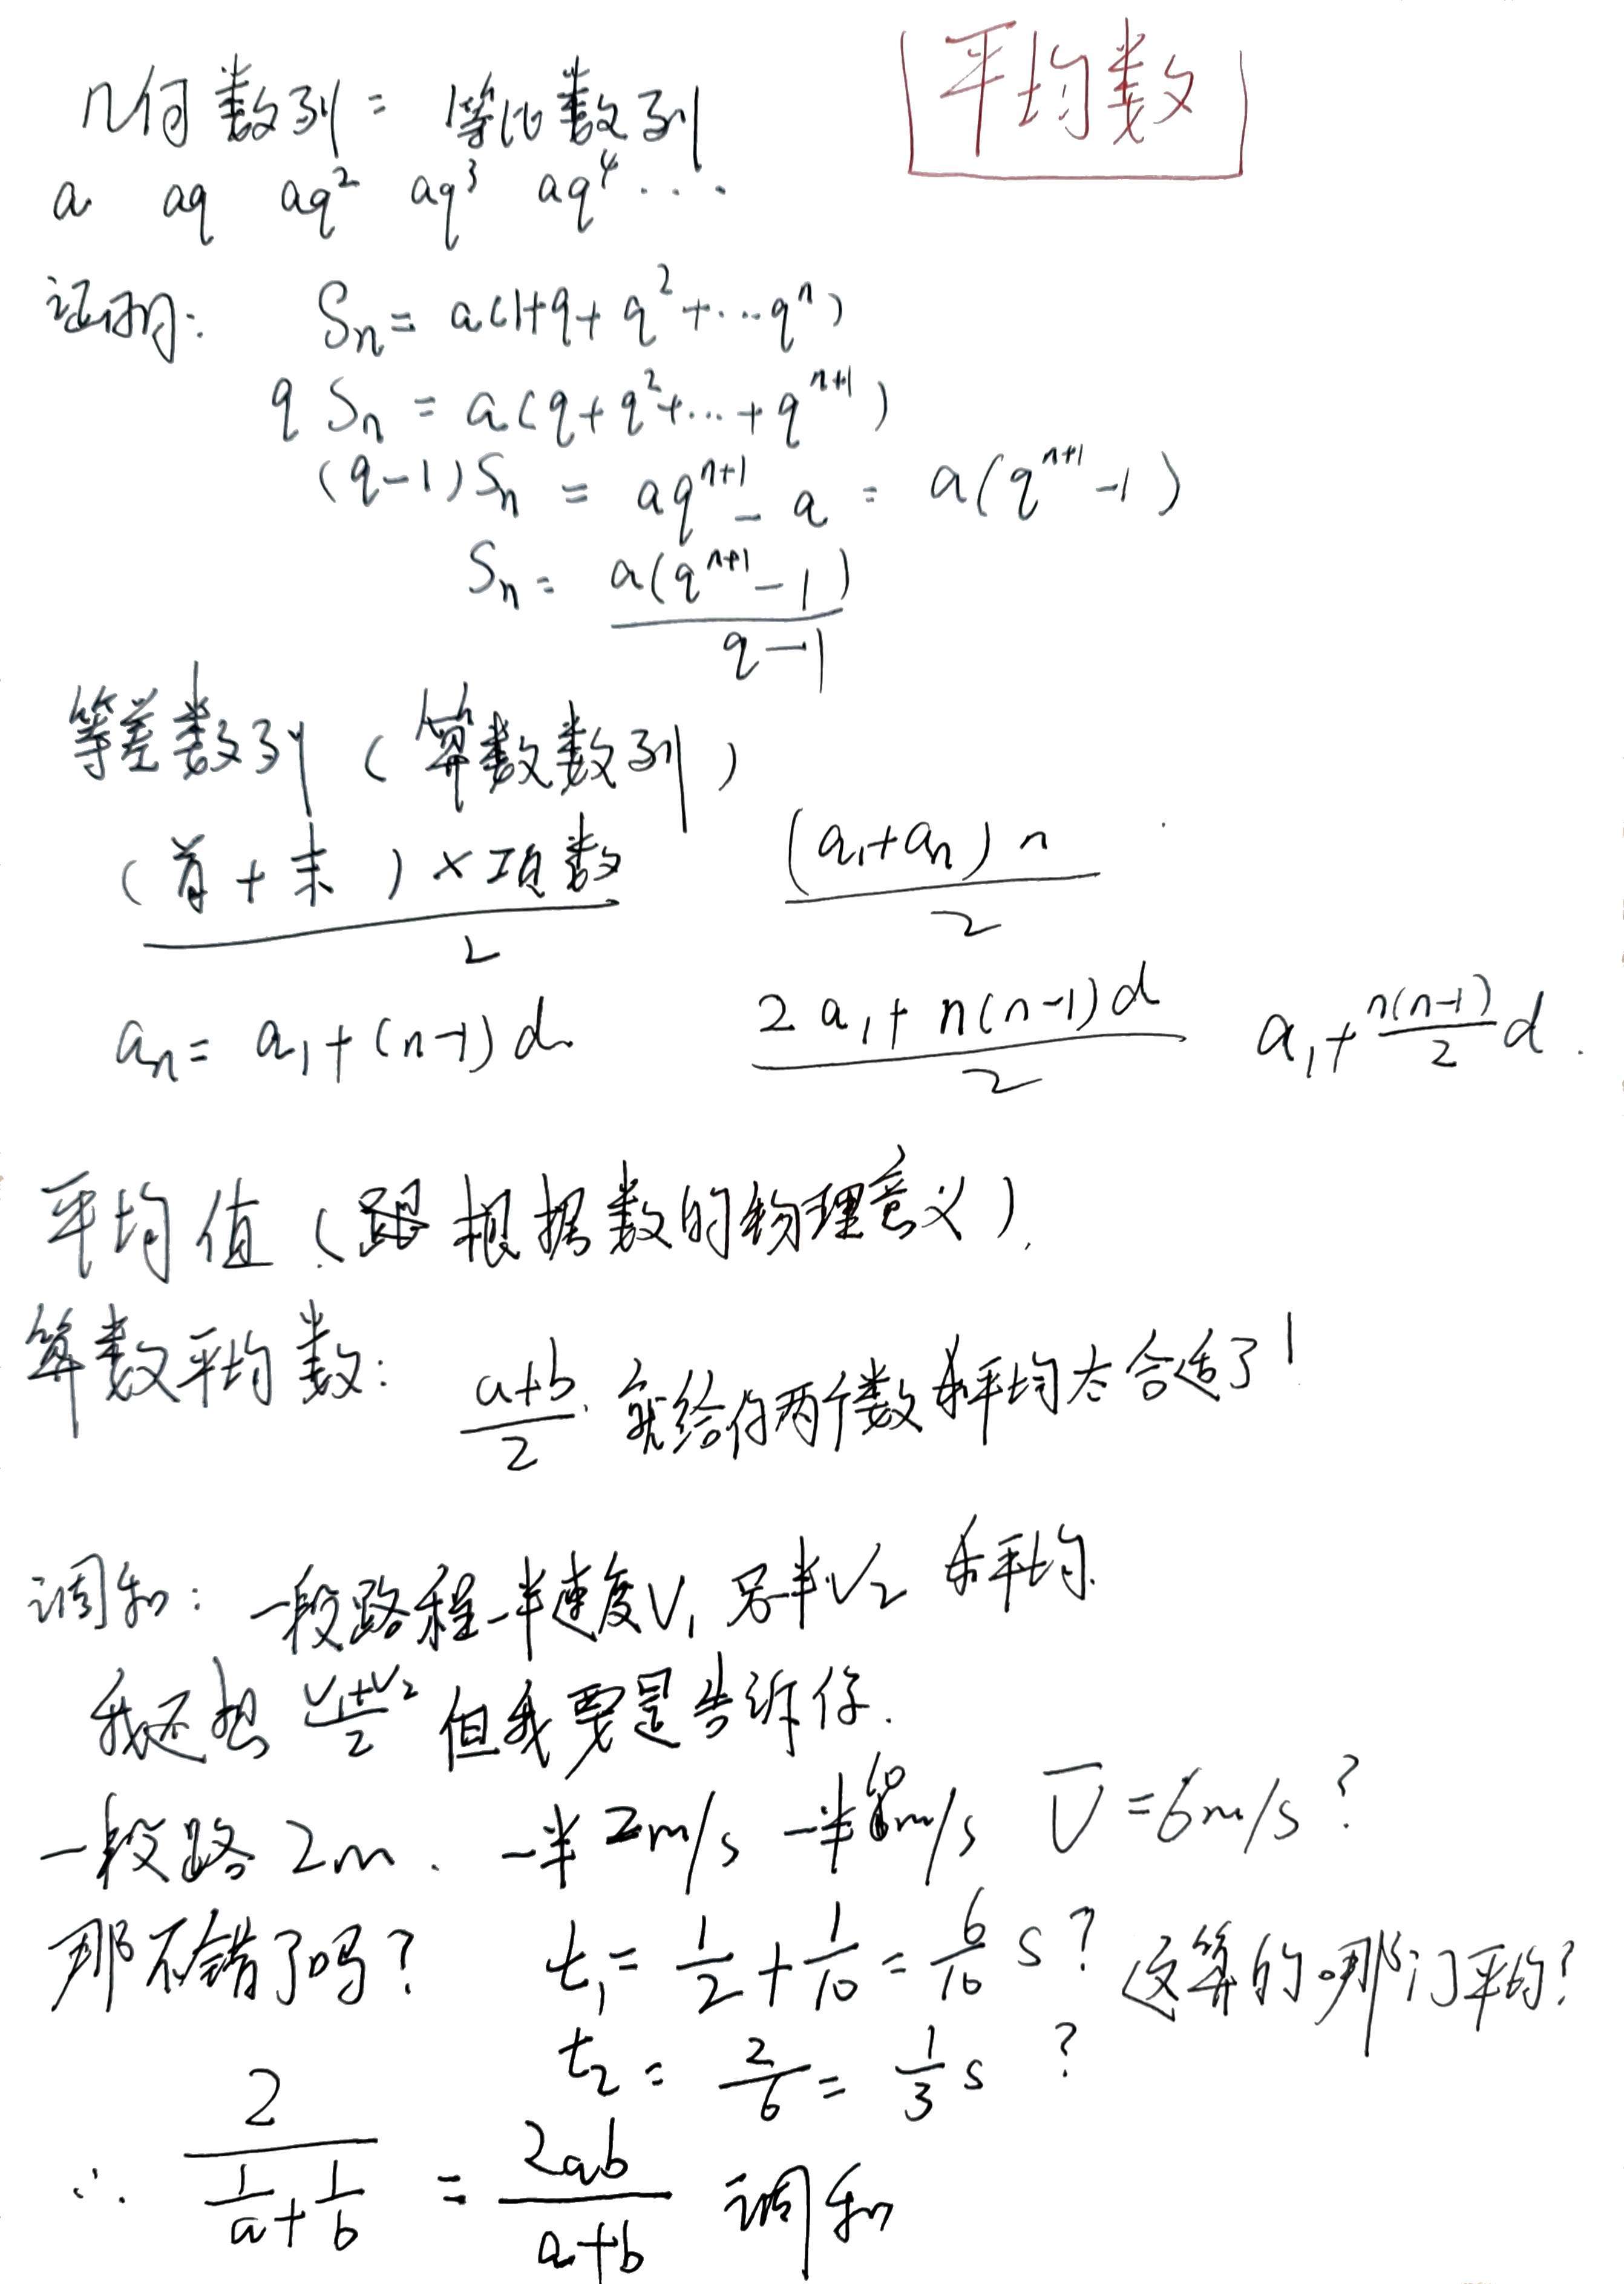 平均数
几何数列 = 等比数列
a aq aq² aq³ aq⁴ ...
证明: Sn = a(1+q+q²+...qⁿ)
qSn = a(q+q²+...+qⁿ⁺¹)
(q-1)Sn = aqⁿ⁺¹ - a = a(qⁿ⁺¹-1)
Sn = a(qⁿ⁺¹-1) / q-1
等差数列 (算数数列)
(首+末) × 项数 / 2 (a₁+an)n / 2
an = a₁+(n-1)d. 2a₁+n(n-1)d / 2 a₁+n(n-1)/2 d.
平均值 (根据数的物理意义).
算数平均数: a+b / 2. 就给你两个数求平均太合适了!
调和: 一段路程一半速度V₁ 另半V₂ 求平均.
我还想 V₁+V₂ / 2 但我要是告诉你.
一段路2m. 一半2m/s 一半10m/s V̄=6m/s?
那不错了吗? t₁ = 1/2 + 1/10 = 6/10 s? 这算的哪门平均?
t₂ = 2/6 = 1/3 s ?
∴ 2 / (1/a + 1/b) = 2ab / a+b 调和